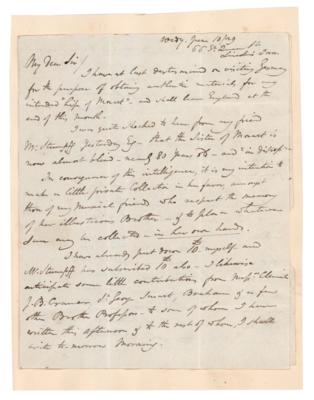 Wedy. June 10/29
My Dear Sir
I have at last determined on visiting Germany
for the purpose of obtaining authentic materials for my
intended life of Mozart - and shall leave England at the
end of this month.
I was quite shocked to hear from my friend
Mr. Stumpff yesterday - that the Sister of Mozart is
now almost blind - nearly 80 years old - and in
In consequence of this intelligence, it is my intention to
make a little private Collection in her favor, amongst
those of my Musical friends who respect the memory
of her illustrious Brother - & to place whatever
sum may be collected - in her own hands.
I have already put down myself and
Mr. Stumpff has submitted also - I likewise
anticipate some little contribution from Messrs. Clementi
J. B. Cramer, Sr. George Smart, & a few
other Brother Professors - to some of whom I have
written this afternoon & to the rest of whom, I shall
write to-morrow Morning.